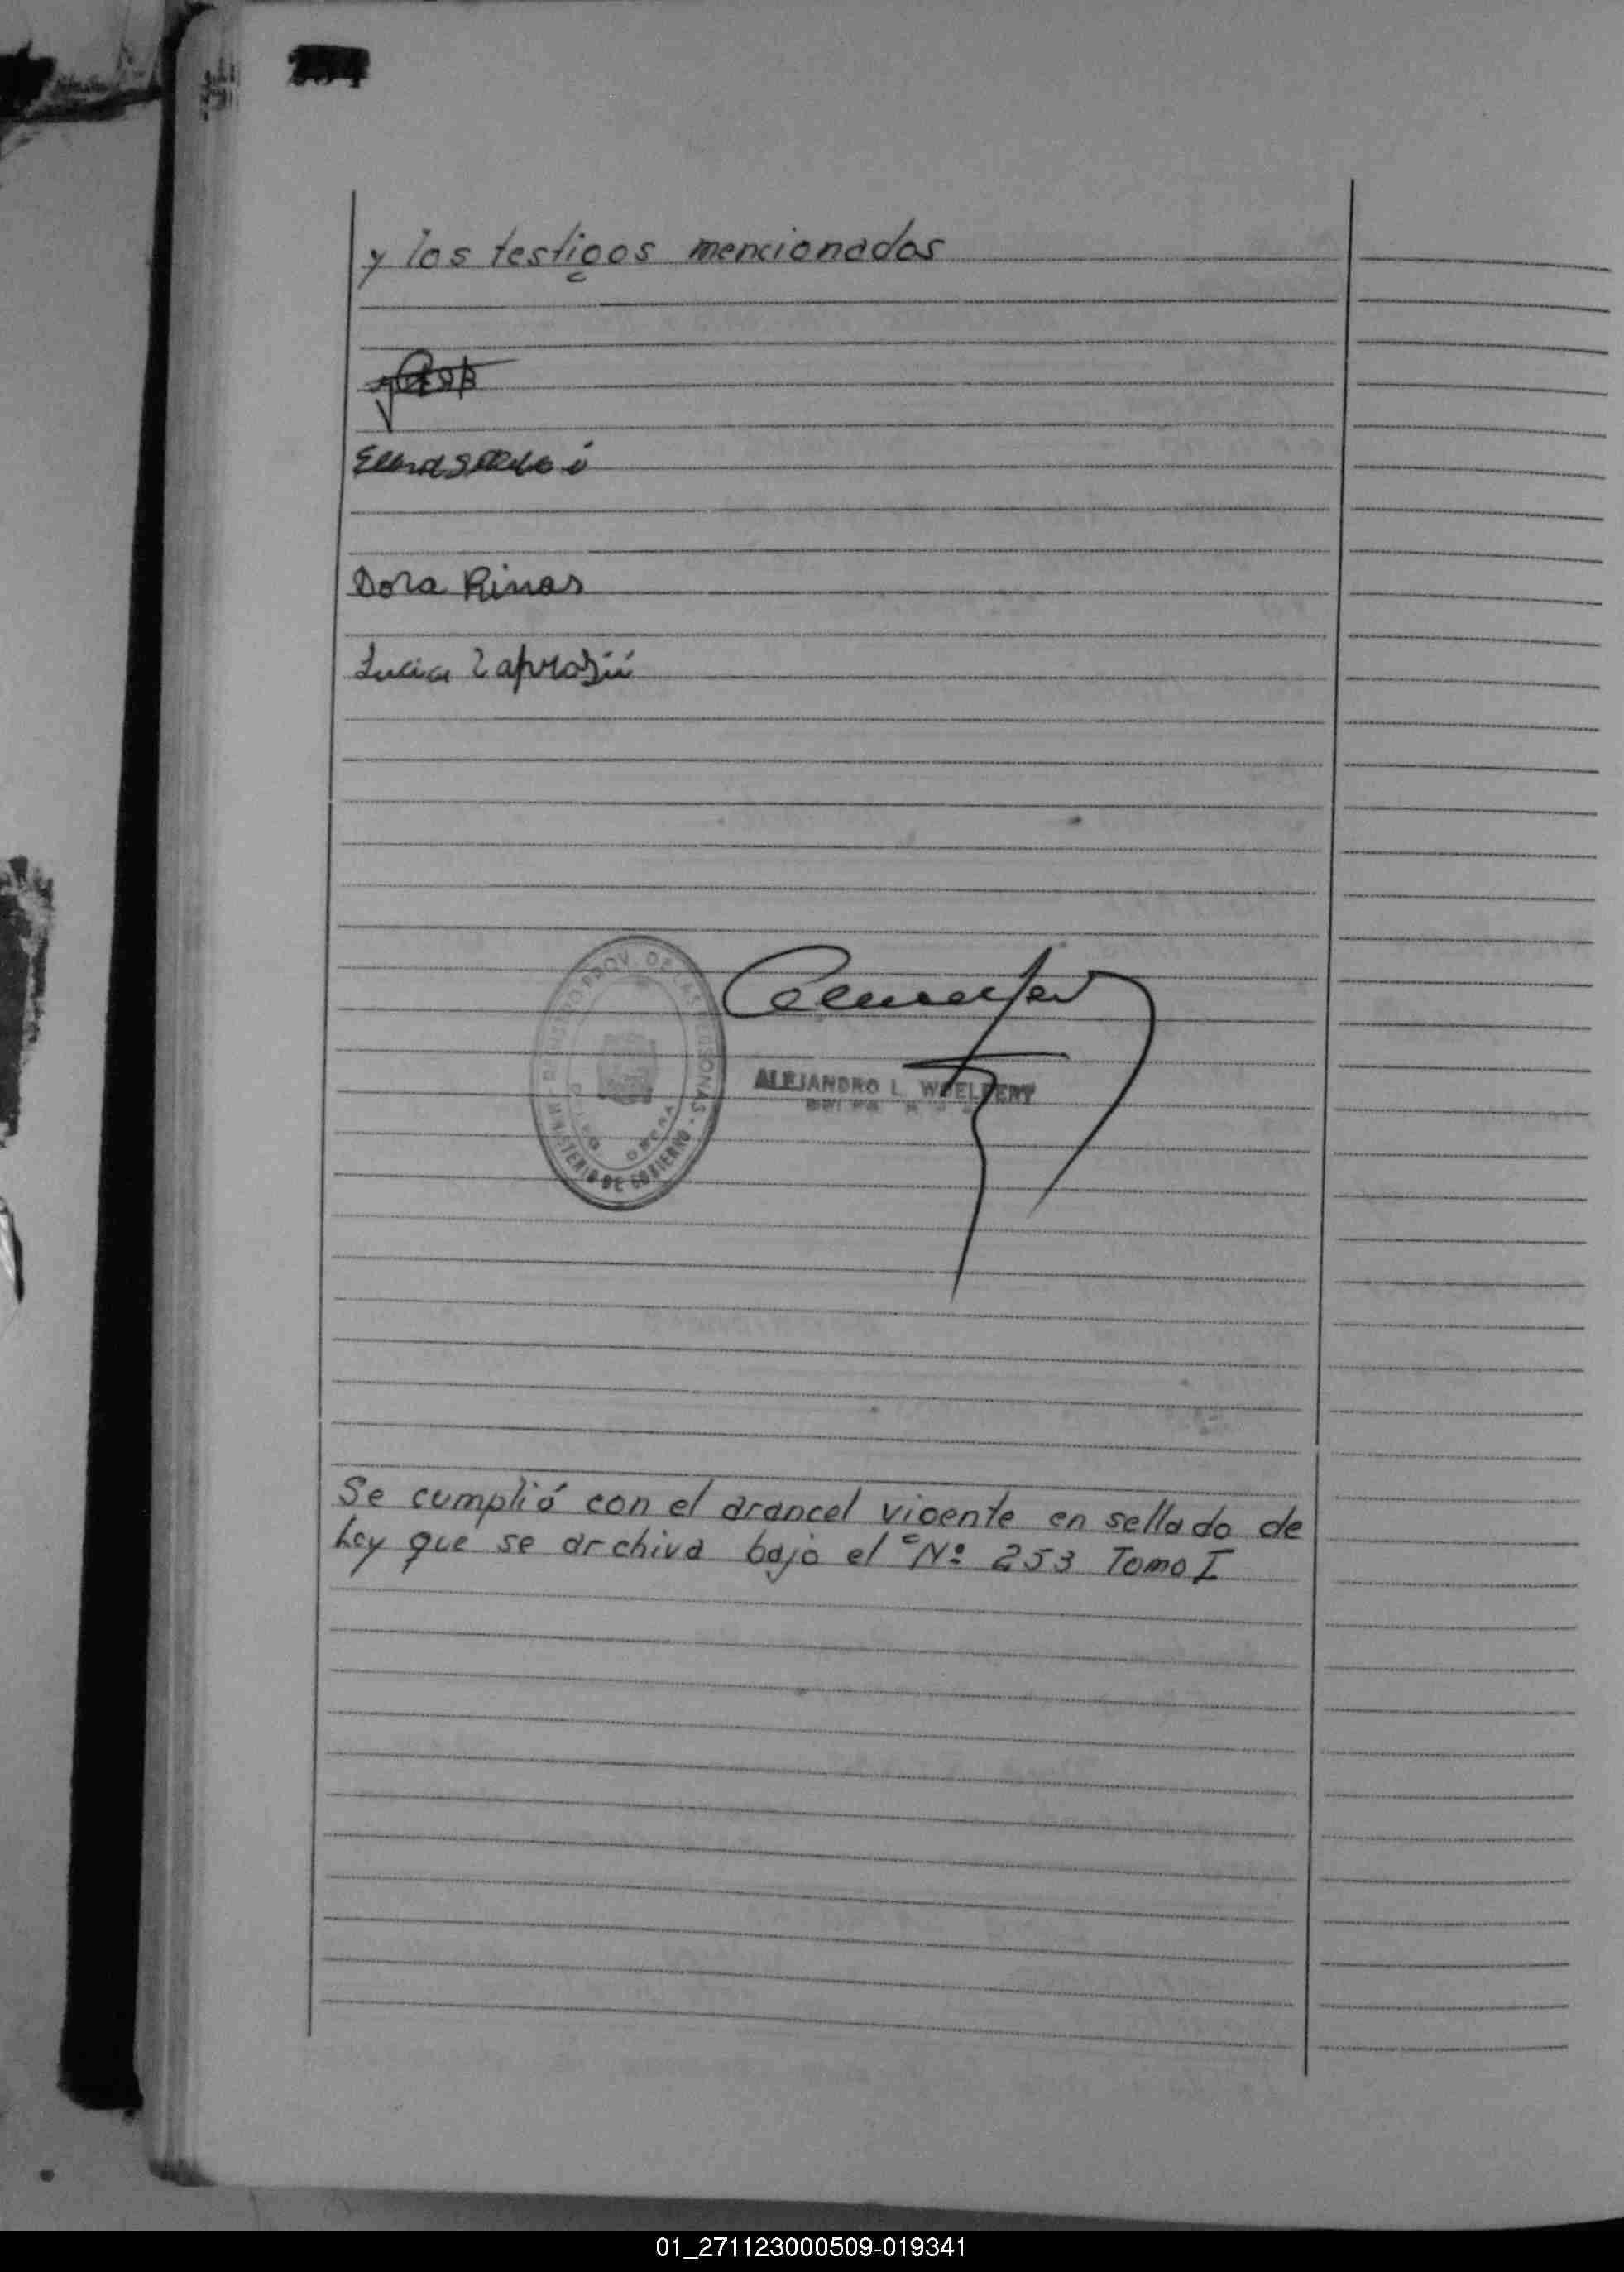 y los testigos mencionados
Dora Rinas
Lucia Zaprozii
REGISTRO PROV. DE LAS PERSONAS
MINISTERIO DE GOBIERNO
ALEJANDRO L. WOELFERT
Se cumplió con el arancel vigente en sellado de
ley que se archiva bajo el Nº 253 Tomo I
01_271123000509-019341